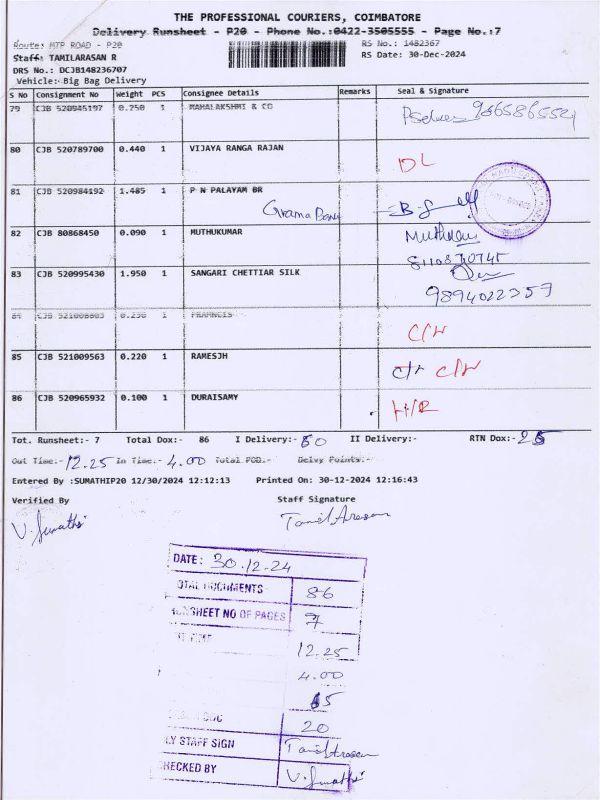 THE PROFESSIONAL COURIERS, COIMBATORE
Delivery Runsheet - P20 - Phone No.:0422-3505555 - Page No.:7
Route: MTP ROAD - P20
RS No.: 1482367
Staff: TAMILARASAN R
RS Date: 30-Dec-2024
DRS No.: DCJB148236707
Vehicle: Big Bag Delivery
S No Consignment No Weight PCS Consignee Details Remarks Seal & Signature
79 CJB 520945197 0.750 1 MAHALAKSHMI & CO
80 CJB 520789700 0.440 1 VIJAYA RANGA RAJAN DL
81 CJB 520984192 1.485 1 P N PALAYAM BR
Grama Bank
82 CJB 80868450 0.090 1 MUTHUKUMAR
83 CJB 520995430 1.950 1 SANGARI CHETTIAR SILK
9894022357
84 CJB 521008803 0.230 1 C/N
85 CJB 521009563 0.220 1 RAMESJH C/N C/N
86 CJB 520965932 0.100 1 DURAISAMY
Tot. Runsheet:- 7 Total Dox:- 86 I Delivery:- II Delivery:- RTN Dox:-
Out Time:- 12.25 In Time:- 4.00 Total POD.- Delvy Points:-
Entered By :SUMATHIP20 12/30/2024 12:12:13 Printed On: 30-12-2024 12:16:43
Verified By Staff Signature
V. Sumathi Tamil Arasan
DATE: 30.12.24
TOTAL DOCUMENTS 86
RUNSHEET NO OF PAGES 7
12.25
4.00
20
STAFF SIGN Tamil Arasan
CHECKED BY V. Sumathi